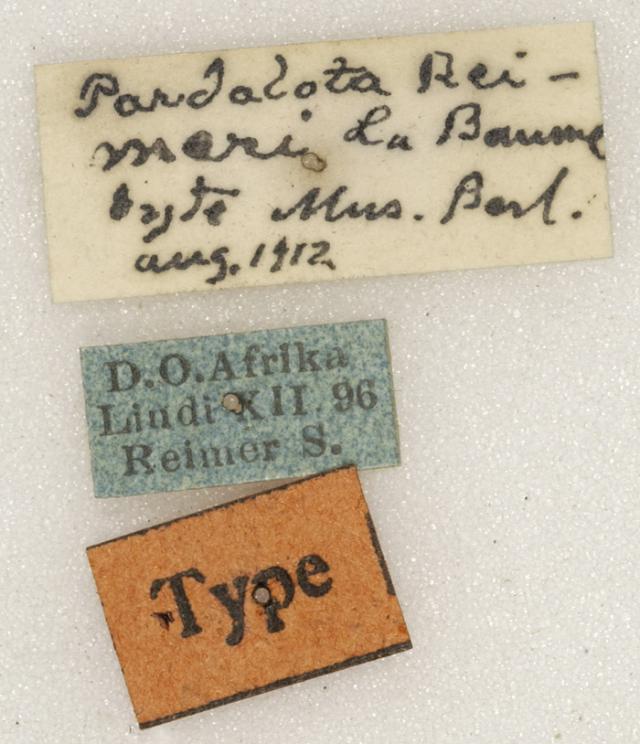 Pardalota Rei-
meri La Baume
type Mus. Berl.
aug. 1912
D.O.Afrika
Lindi XII. 96
Reimer S.
Type